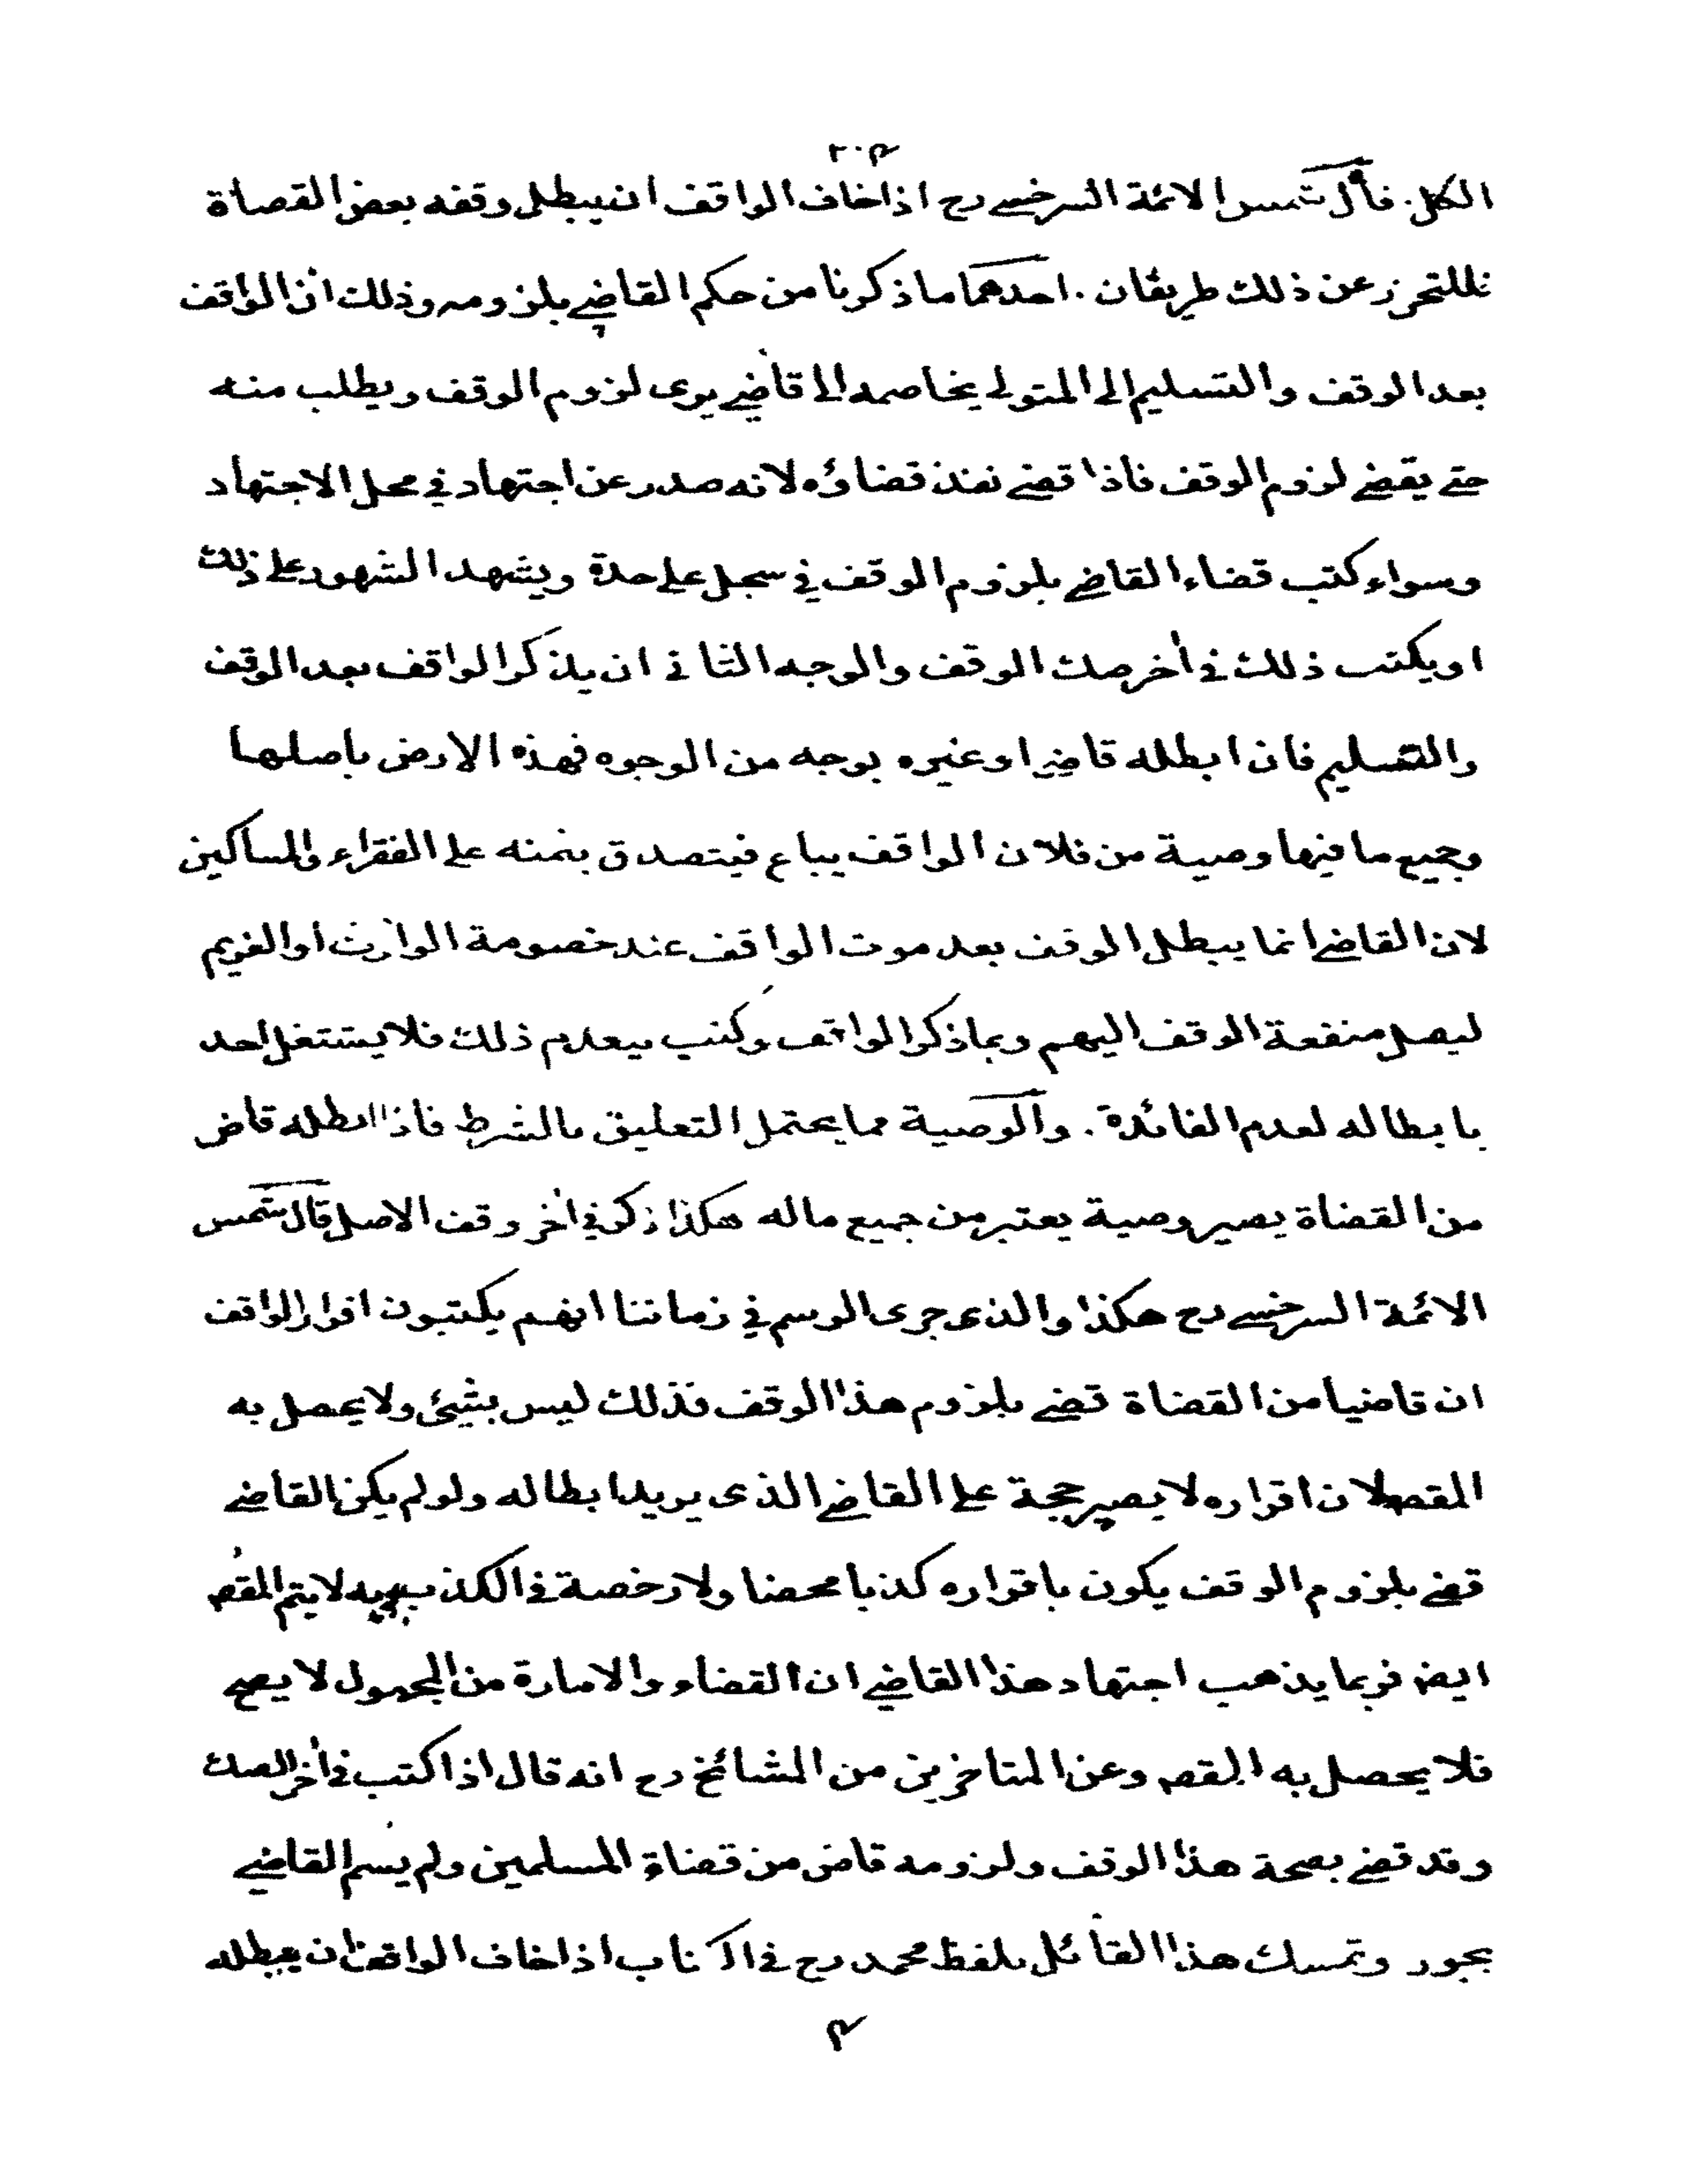 ٢٠٤
الكل. قال شمس الائمة السرخسے رح اذا خاف الواقف ان يبطل وقفه بعض القضاة
فللتحرز عن ذلك طريقان. احدهما ما ذكرنا من حكم القاضے بلزومه وذلك ان الواقف
بعد الوقف والتسليم الى المتولے يخاصمه الى قاضے يرى لزوم الوقف ويطلب منه
حتے يقضے لزوم الوقف فاذا قضے نفذ قضاؤه لانه صدر عن اجتهاد في محل الاجتهاد
وسواء كتب قضاء القاضے بلزوم الوقف في سجل علے حدة ويشهد الشهور علے ذلك
او يكتب ذلك في أخر صك الوقف والوجه الثانے ان يذكر الواقف بعد الوقف
والتسليم فان ابطله قاضے او غيره بوجه من الوجوه فهذه الارض باصلها
وجميع ما فيها وصية من فلان الواقف يباع فيتصدق بثمنه علے الفقراء والمساكين
لان القاضے انما يبطل الوقف بعد موت الواقف عند خصومة الوارث او الغريم
ليصل منفعة الوقف اليهم وبما ذكر الواقف وكتب ينعدم ذلك فلا يشتغل احد
بابطاله لعدم الفائدة. والوصية مما يحتمل التعليق بالشرط فاذا ابطله قاض
من القضاة يصير وصية يعتبر من جميع ماله هكذا ذكر في أخر وقف الاصل قال شمس
الائمة السرخسے رح هكذا والذى جرى الرسم في زماننا انهم يكتبون اقرار الواقف
ان قاضيا من القضاة قضے بلزوم هذا الوقف فذلك ليس بشيئ ولا يحصل به
المقصه لان اقراره لا يصير حجة علے القاضے الذى يريد ابطاله ولو لم يكن القاضے
قضے بلزوم الوقف يكون باقراره كذبا محضا ولا رخصة في الكذب وبه لا يتم المقصه
ايضه فربما يذهب اجتهاد هذا القاضے ان القضاء والامارة من المجهول لا يصح
فلا يحصل به المقصه وعن المتاخرين من المشائخ رح انه قال اذا كتب في أخر الصك
وقد قضے بصحة هذا الوقف ولزومه قاض من قضاة المسلمين ولم يسم القاضے
يجوز وتمسك هذا القائل بلفظ محمد رح في الكتاب اذا خاف الواقف ان يبطله
٤